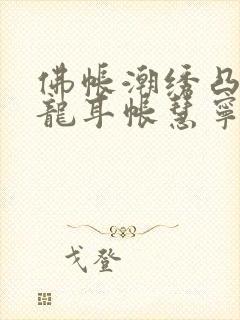 佛帐潮绣凸
龍耳帐慧寧
戈登